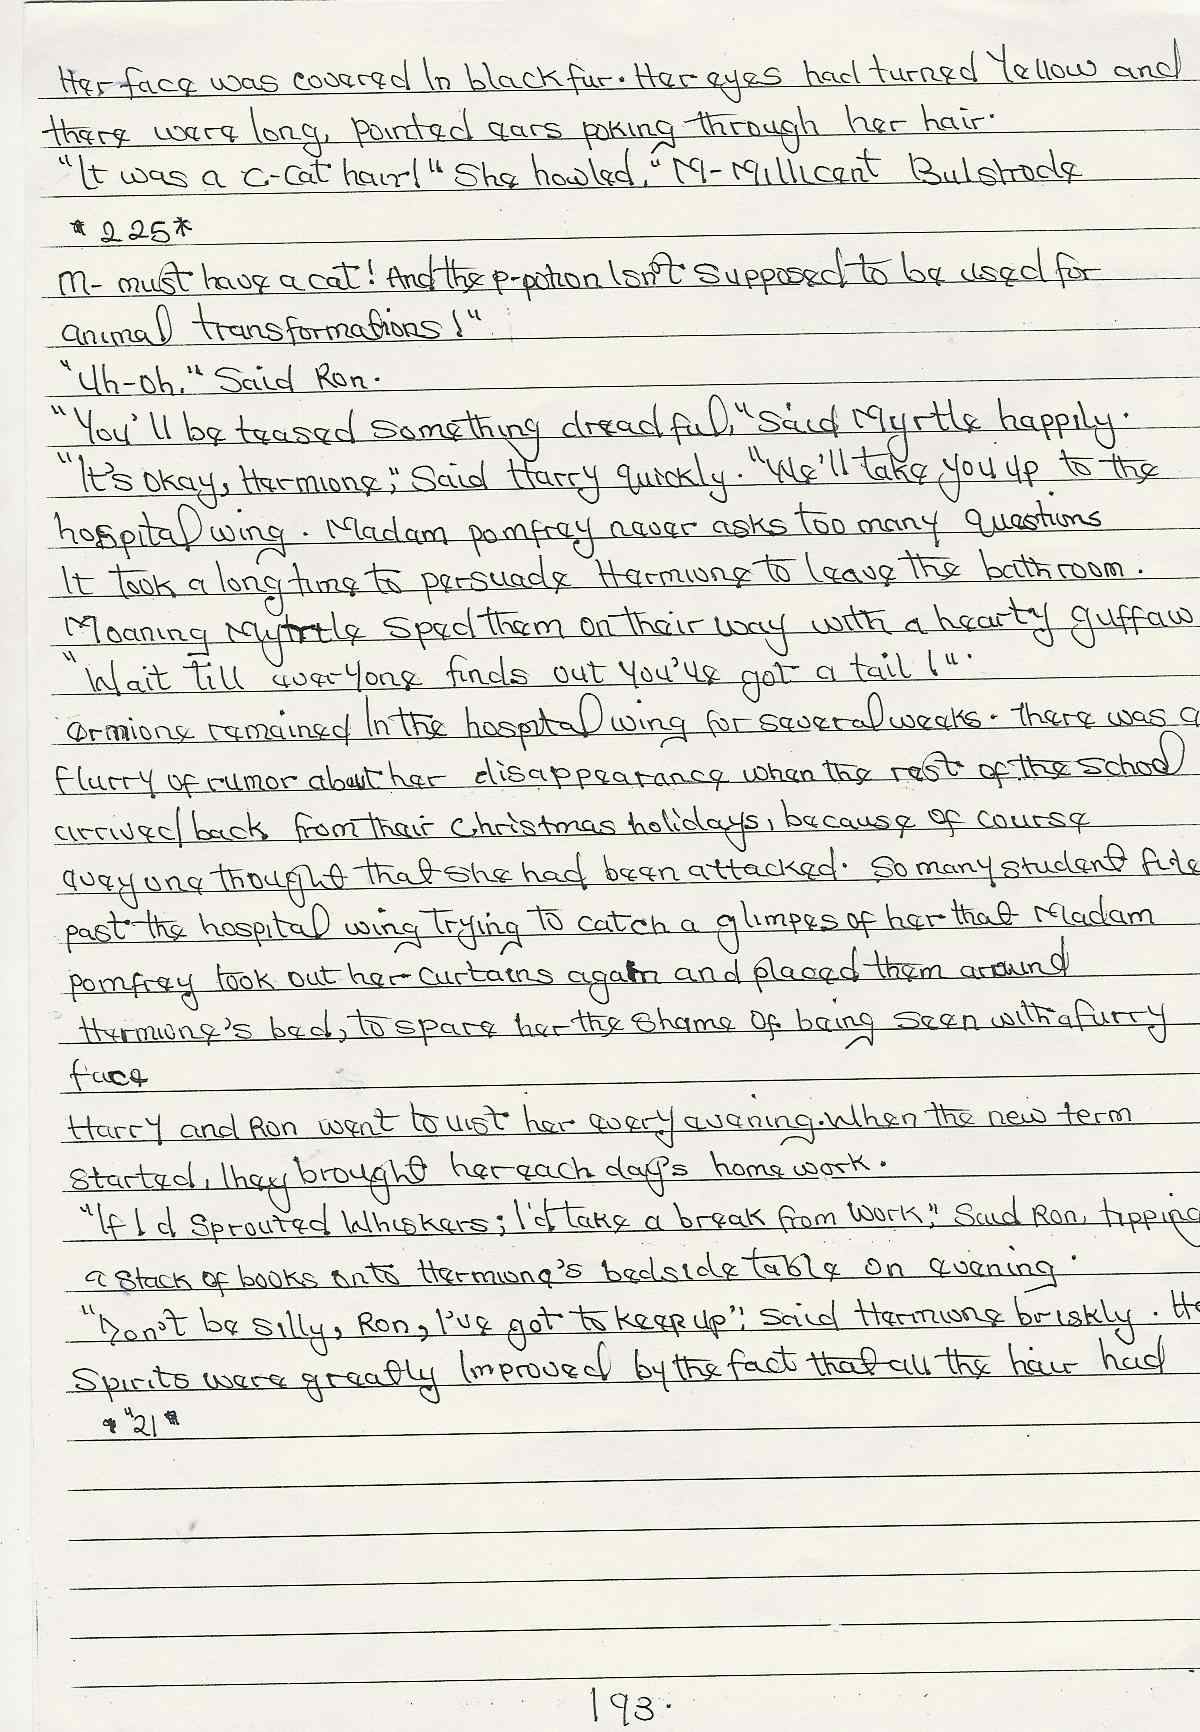 Her face was covered In black fur. Her eyes had turned Yellow and
there were long, pointed ears poking through her hair.
"It was a c-cat hair!" She howled, "M-Millicent Bulstrode
*225*
M- must have a cat! And the p-potion Isn't supposed to be used for
animal transformations!"
"Uh-oh." Said Ron.
"You'll be teased something dreadful," Said Myrtle happily.
"It's okay, Hermione," Said Harry quickly. "We'll take you up to the
hospital wing. Madam pomfrey never asks too many questions
It took a long time to persuade Hermione to leave the bathroom.
Moaning Myrtle Sped them on their way with a hearty guffaw
"Wait till everyone finds out you've got a tail!".
ermione remained In the hospital wing for several weeks. There was a
flurry of rumor about her disappearance when the rest of the School
arrived back from their Christmas holidays, because of course
eveyone thought that she had been attacked. So many student file
past the hospital wing Trying to catch a glimpes of her that Madam
pomfrey took out her curtains again and placed them around
Hermione's bed, to spare her the Shame Of being seen with a furry
face
Harry and Ron went to vist her every evening. When the new term
started, they brought her each day's homework.
"If I d Sprouted Whiskers; I'd take a break from Work," Said Ron, tipping
a stack of books onto Hermione's bedside table on evening.
"Don't be silly, Ron, I've got to keep up"; said Hermione briskly. He
Spirits were greatly Improved by the fact that all the hair had
*"21*
193.